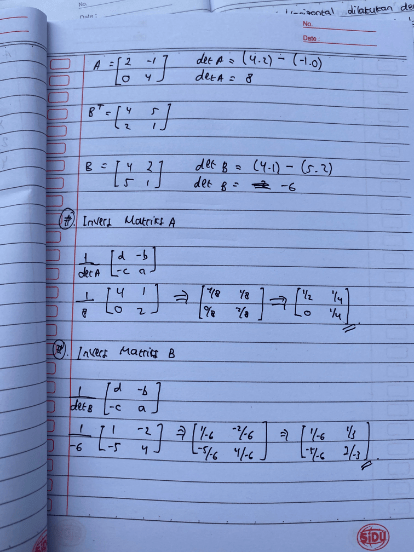 Horizontal dilakukan de
No.
Date
A = [2 -1
0 4] det A = (4.2) - (-1.0)
det A = 8
Bᵀ = [4 5
2 1]
B = [4 2
5 1] det B = (4.1) - (5.2)
det B = -6
Invers Matriks A
1/det A [d -b
-c a]
1/8 [4 1
0 2] ⇒ [4/8 1/8
0/8 2/8] ⇒ [1/2 1/4
0 1/4]
Invers Matriks B
1/det B [d -b
-c a]
1/-6 [1 -2
-5 4] ⇒ [1/-6 -2/-6
-5/-6 4/-6] ⇒ [1/-6 1/3
2/-3]
SIDU